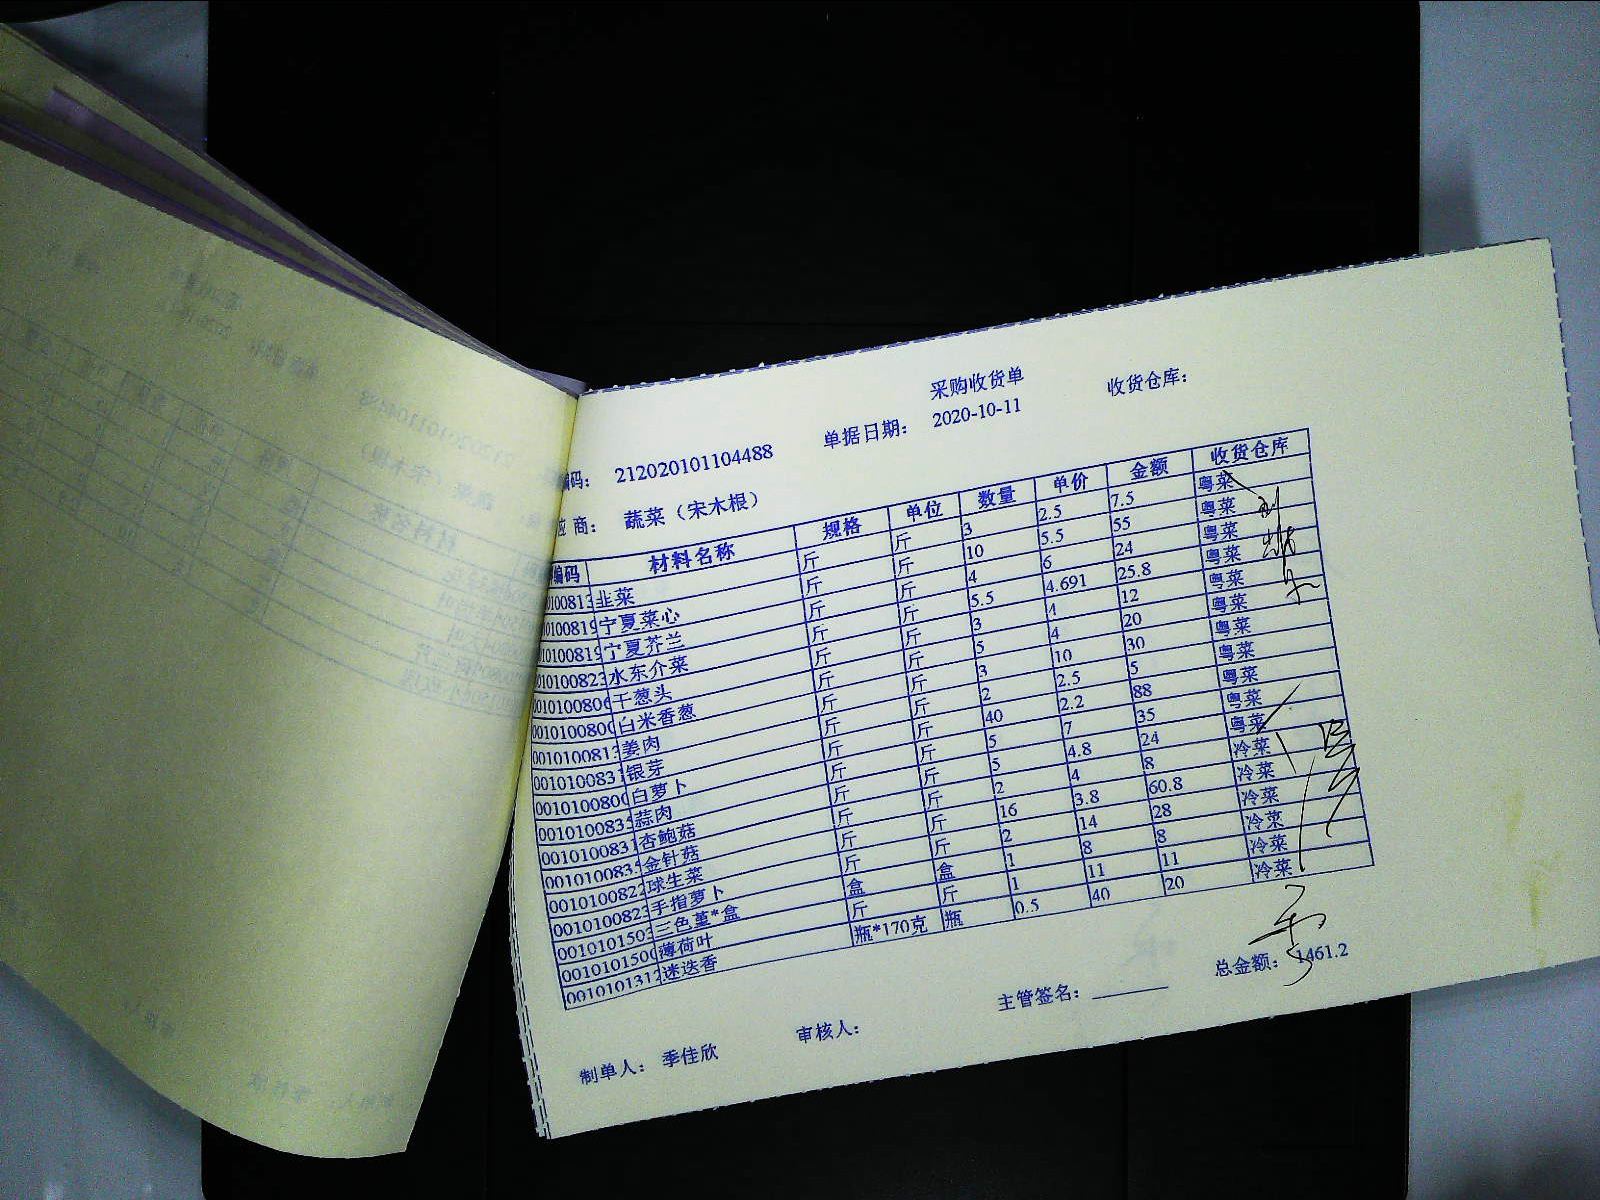 采购收货单
编码： 212020101104488 单据日期： 2020-10-11 收货仓库：
应 商： 蔬菜（宋木根）
编码 材料名称 规格 单位 数量 单价 金额 收货仓库
0100813 韭菜 斤 斤 3 2.5 7.5 粤菜
0100819 宁夏菜心 斤 斤 10 5.5 55 粤菜
10100819 宁夏芥兰 斤 斤 4 6 24 粤菜
010100823 水东介菜 斤 斤 5.5 4.691 25.8 粤菜
0010100806 干葱头 斤 斤 3 4 12 粤菜
001010080 白米香葱 斤 斤 5 4 20 粤菜
001010081 姜肉 斤 斤 3 10 30 粤菜
0010100831 银芽 斤 斤 2 2.5 5 粤菜
001010080 白萝卜 斤 斤 40 2.2 88 粤菜
001010083 蒜肉 斤 斤 5 7 35 粤菜
0010100831 杏鲍菇 斤 斤 5 4.8 24 粤菜
001010083 金针菇 斤 斤 2 4 8 冷菜
001010082 球生菜 斤 斤 16 3.8 60.8 冷菜
001010082 手指萝卜 斤 斤 2 14 28 冷菜
001010150 三色堇*盒 盒 盒 1 8 8 冷菜
001010150 薄荷叶 斤 斤 1 11 11 冷菜
001010131 迷迭香 瓶*170克 瓶 0.5 40 20 冷菜
制单人： 季佳欣 审核人： 主管签名： 总金额： 1461.2